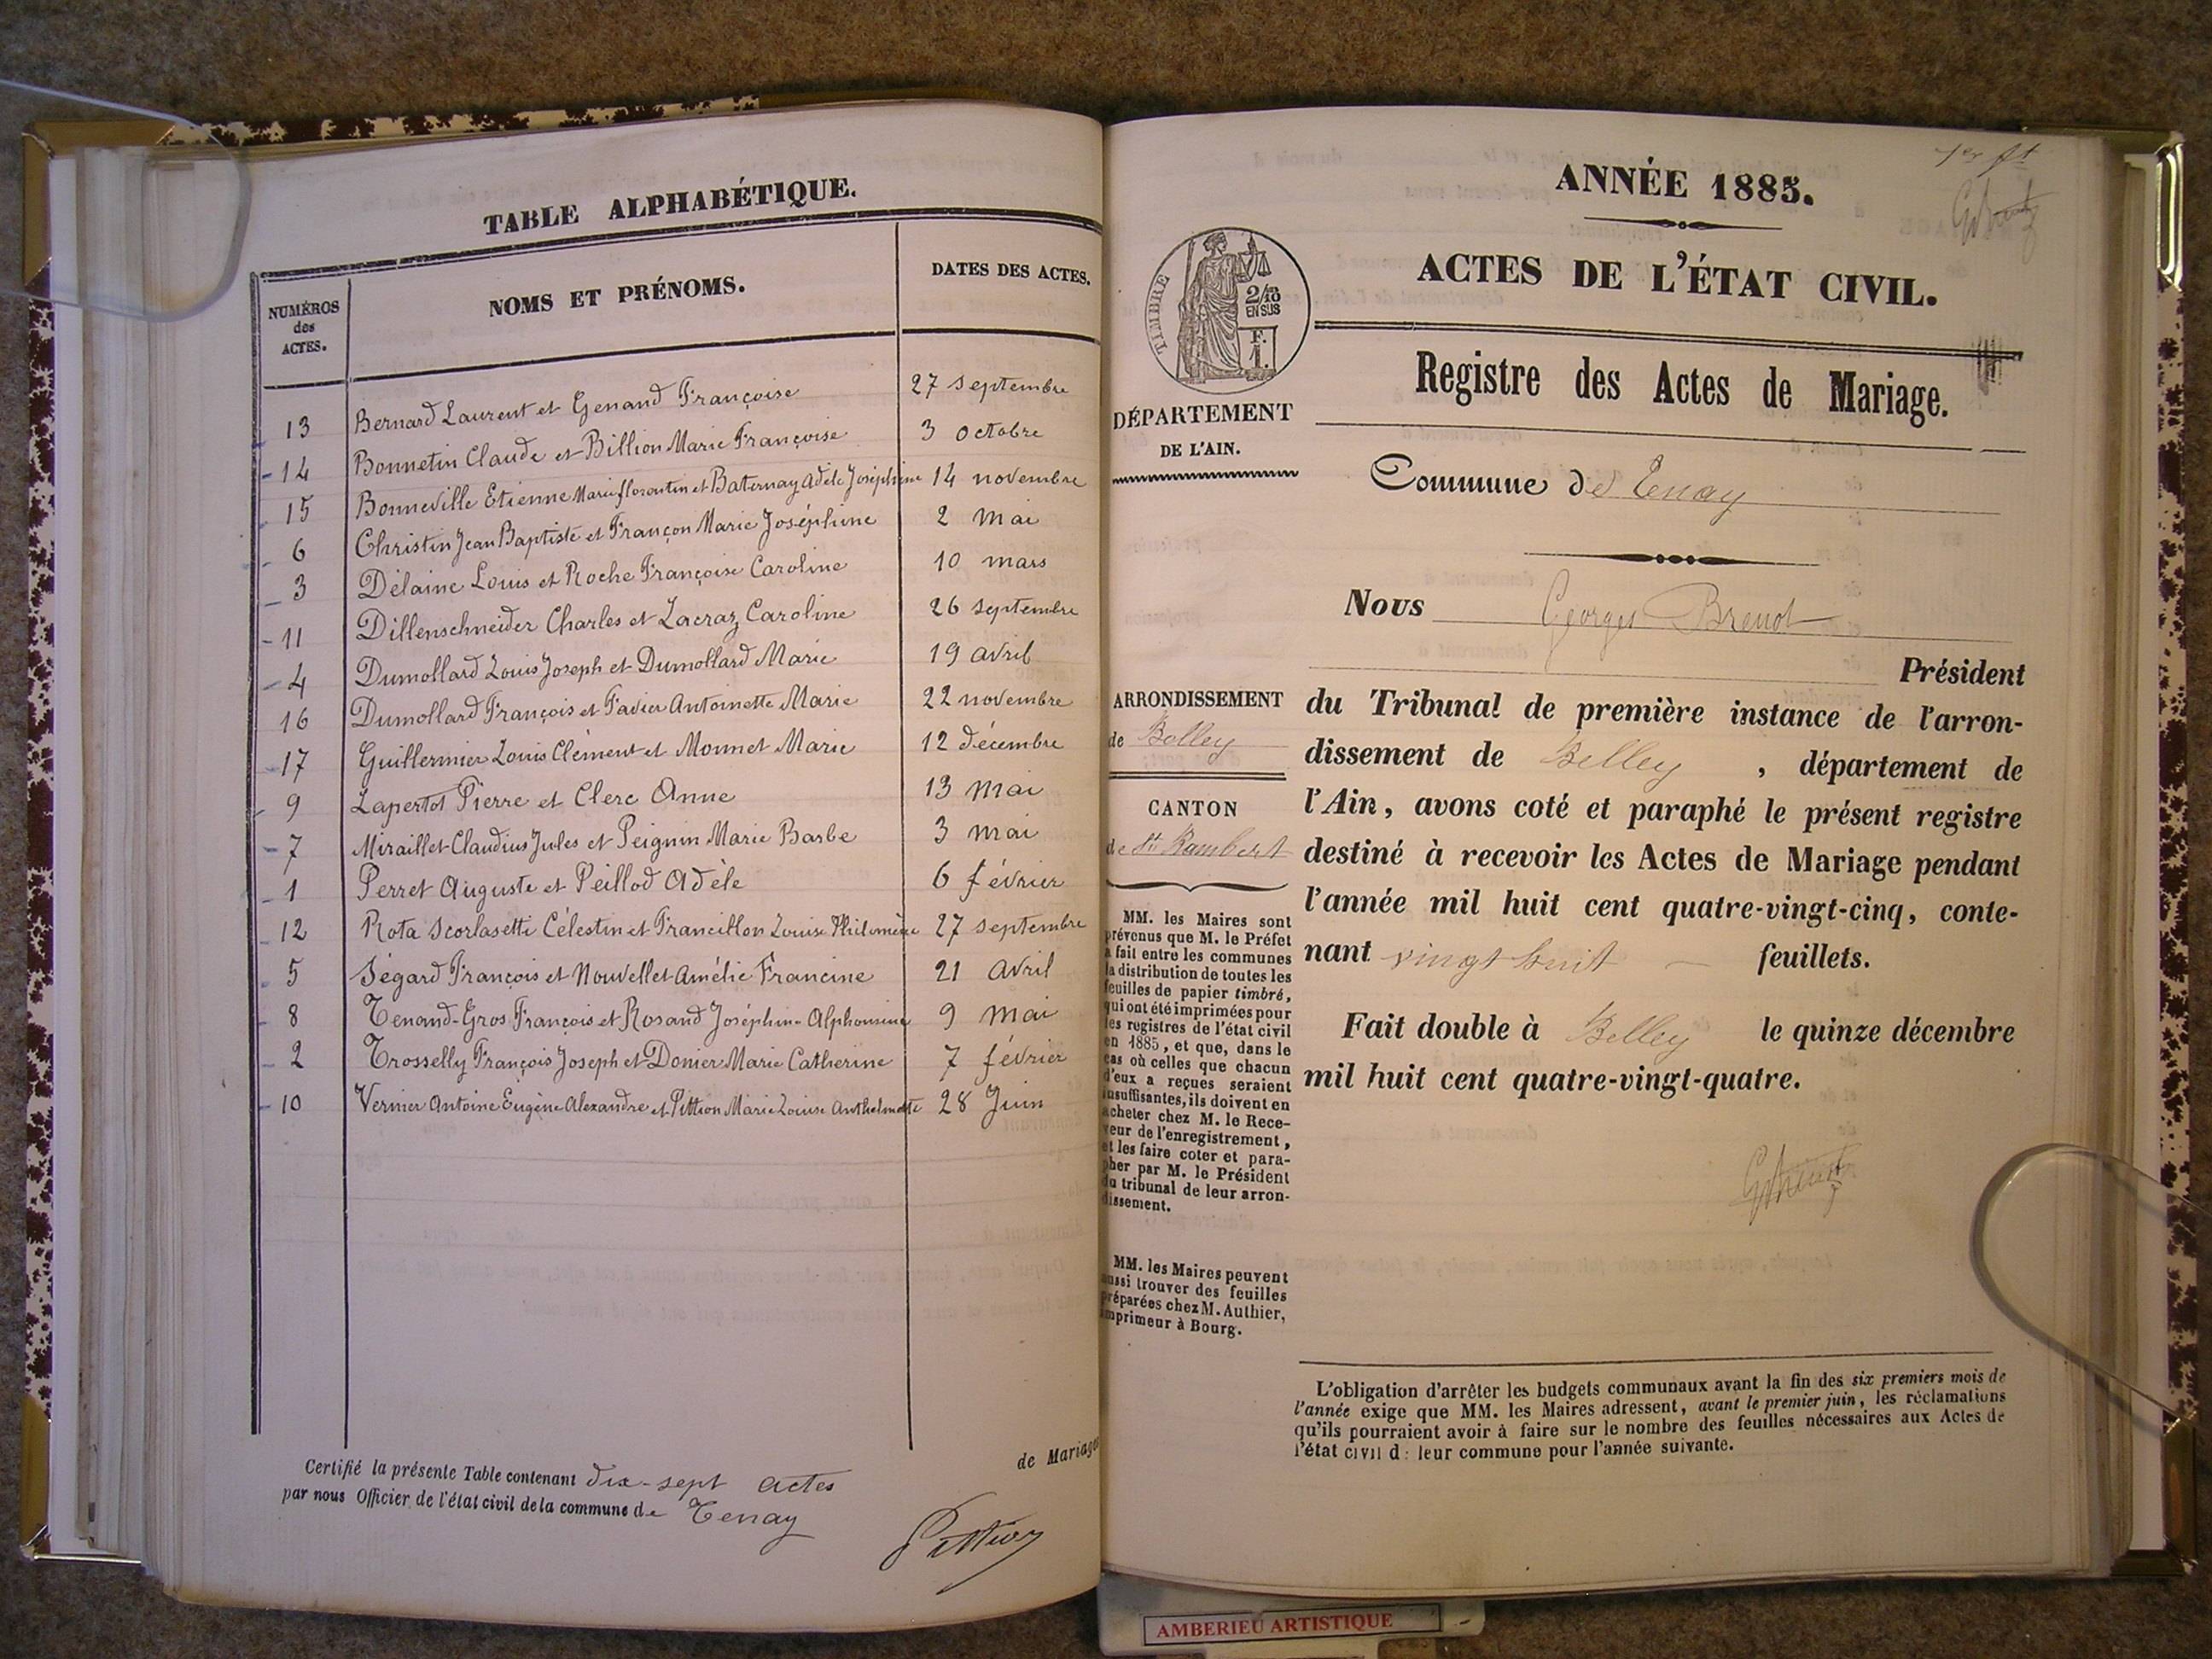 TABLE ALPHABÉTIQUE.
NUMÉROS
des
ACTES.
NOMS ET PRÉNOMS.
DATES DES ACTES.
13 Bernard Laurent et Genand Françoise 27 septembre
14 Bonnetin Claude et Billion Marie Françoise 3 octobre
15 Bonneville Etienne Marie florentin et Baternay Adèle Joséphine 14 novembre
6 Christin Jean Baptiste et Françon Marie Joséphine 2 mai
3 Délaine Louis et Roche Françoise Caroline 10 mars
11 Dillenschneider Charles et Lacraz Caroline 26 septembre
4 Dumollard Louis Joseph et Dumollard Marie 19 avril
16 Dumollard François et Favier Antoinette Marie 22 novembre
17 Guillermier Louis Clément et Monnet Marie 12 décembre
9 Lapertot Pierre et Clerc Anne 13 mai
7 Miraillet Claudius Jules et Peignin Marie Barbe 3 mai
1 Perret Auguste et Peillod Adèle 6 février
12 Rota Scorlasetti Célestin et Francillon Louise Philomène 27 septembre
5 Ségard François et Nouvellet Amélie Francine 21 avril
8 Tenand-Gros François et Rosand Joséphine Alphonsine 9 mai
2 Trosselly François Joseph et Donier Marie Catherine 7 février
10 Vernier Antoine Eugène Alexandre et Pittion Marie Louise Anthelmette 28 Juin
Certifié la présente Table contenant dix-sept actes de Mariage
par nous Officier de l'état civil de la commune de Tenay
Pittion
1er ft
ANNÉE 1885.
ACTES DE L'ÉTAT CIVIL.
TIMBRE
2/10
EN SUS
F.
1.
Registre des Actes de Mariage.
DÉPARTEMENT
DE L'AIN.
Commune de Tenay
Nous Georges Brenot
Président
ARRONDISSEMENT
de Belley
CANTON
de St Rambert
du Tribunal de première instance de l'arron-
dissement de Belley, département de
l'Ain, avons coté et paraphé le présent registre
destiné à recevoir les Actes de Mariage pendant
l'année mil huit cent quatre-vingt-cinq, conte-
nant vingt huit — feuillets.
Fait double à Belley le quinze décembre
mil huit cent quatre-vingt-quatre.
MM. les Maires sont
prévenus que M. le Préfet
a fait entre les communes
la distribution de toutes les
feuilles de papier timbré,
qui ont été imprimées pour
les registres de l'état civil
en 1885, et que, dans le
cas où celles que chacun
d'eux a reçues seraient
insuffisantes, ils doivent en
acheter chez M. le Rece-
veur de l'enregistrement,
et les faire coter et para-
pher par M. le Président
du tribunal de leur arron-
dissement.
MM. les Maires peuvent
aussi trouver des feuilles
préparées chez M. Authier,
imprimeur à Bourg.
L'obligation d'arrêter les budgets communaux avant la fin des six premiers mois de
l'année exige que MM. les Maires adressent, avant le premier juin, les réclamations
qu'ils pourraient avoir à faire sur le nombre des feuilles nécessaires aux Actes de
l'état civil d: leur commune pour l'année suivante.
AMBERIEU ARTISTIQUE